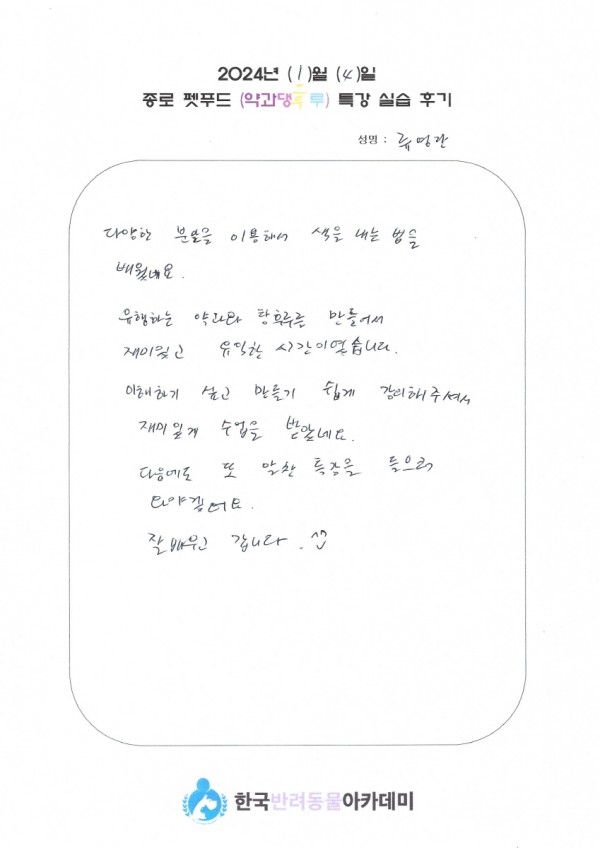 2024년 (1)월 (4)일
종로 펫푸드 (약과댕후루) 특강 실습 후기
성명 : 류영관
다양한 분말을 이용해서 색을 내는 법을
배웠네요.
유행하는 약과와 탕후루를 만들어서
재미있고 유익한 시간이였습니다.
이해하기 쉽고 만들기 쉽게 강의해주셔서
재미있게 수업을 받았네요.
다음에도 또 알찬 특강을 들으러
와야겠어요.
잘 배우고 갑니다. ^^
한국반려동물아카데미